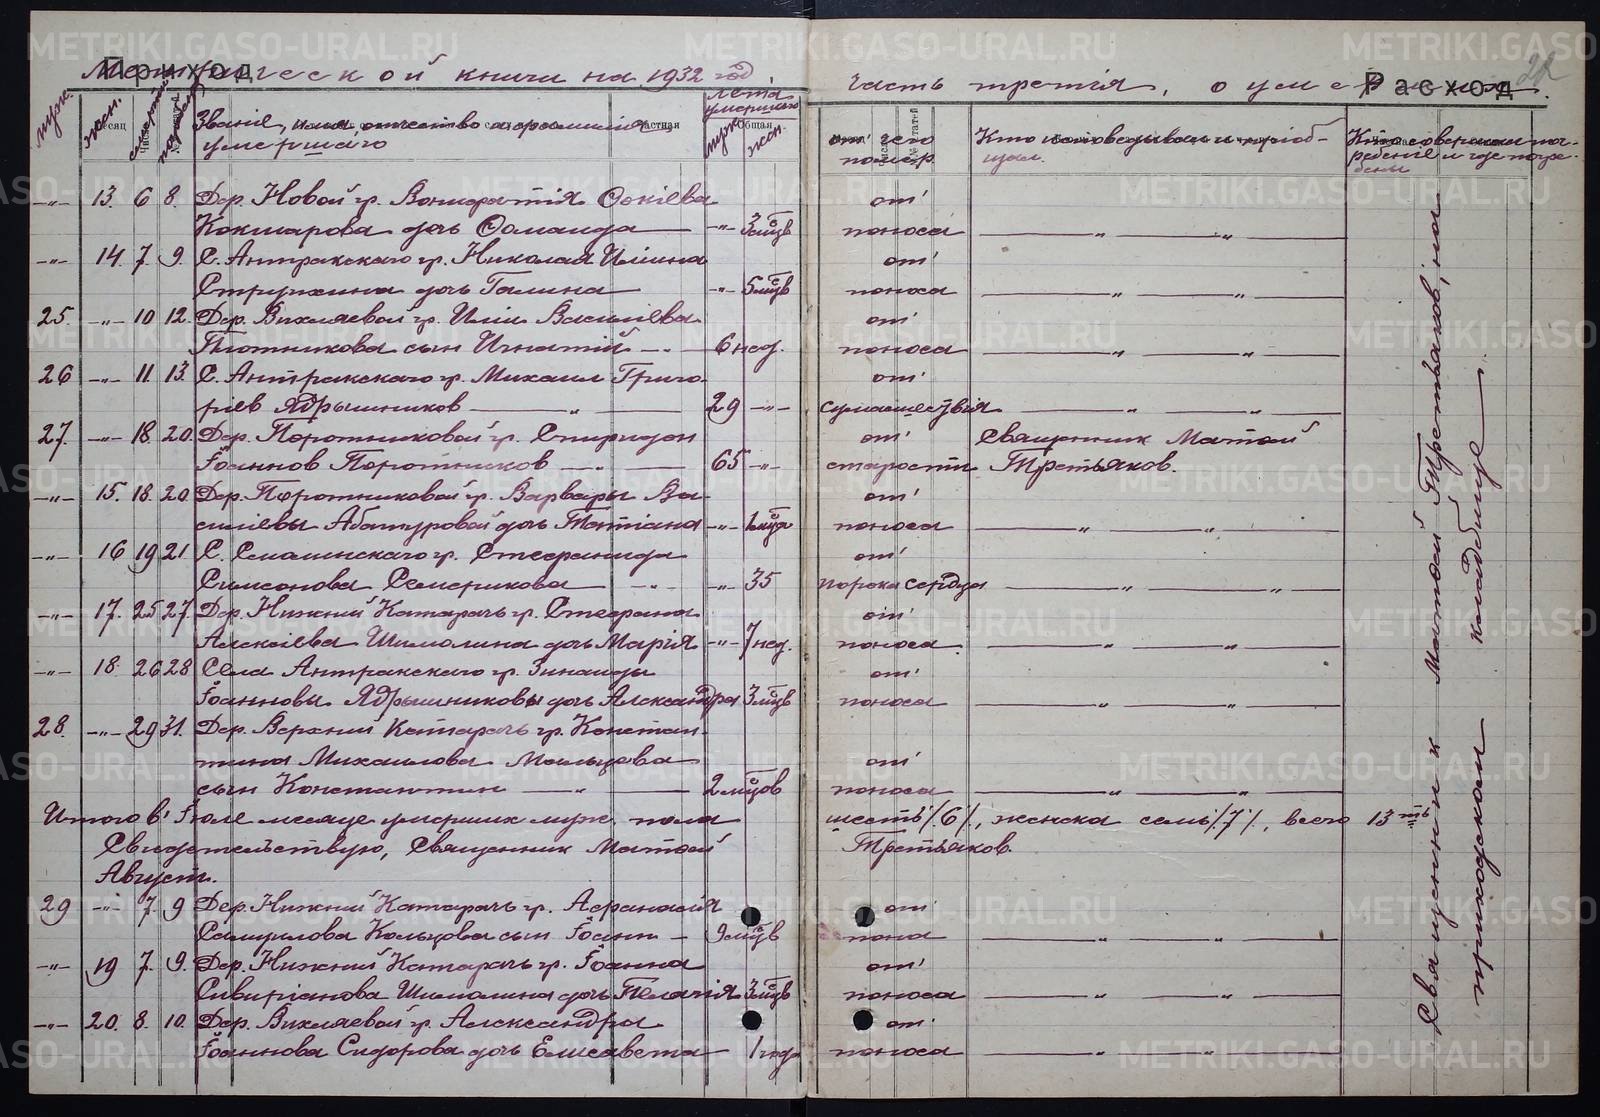 Метрической книги на 1932 год
Приход
часть третья, о умерших
Расход
муж. жен. смерти погребен.
Званіе, имя, отчество и фамилія
умершаго
Лета
умершаго
муж. жен.
от чего
помер.
Кто исповедывал и пріоб-
щал.
Кто совершал пог-
ребеніе и где погре-
бены
-"- 13. 6 8. Дер. Новой гр.
Кокшарова дочь -"- 3 мцв
от
поноса
-"- 14. 7. 9. С. Антракскаго гр. Николая Иліина
дочь Галина -"- 5 мцв
от
поноса
25. -"- 10 12. Дер. Вихляевой гр. Иліи Василіева
Плотникова сын Игнатій 6 нед.
от
поноса
26 -"- 11. 13. С. Антракскаго гр. Михаил Григо-
ріев Ядрышников 29 -"-
от
сумашествія
27. -"- 18. 20. Дер. Поротниковой гр. Спиридон
Іоаннов Поротников 65 -"-
от
старости
Священник Матфей
Третьяков.
-"- 15. 18. 20. Дер. Поротниковой гр. Варвары Ва-
силіевы Абатуровой дочь Татіана -"- 1 мца
от
поноса
-"- 16 19 21 С. Смолинскаго гр. Стефанида
Симеонова Семерикова -"- 35
от
порока сердца
-"- 17. 25 27. Дер. Нижний Катарач гр. Стефана
Алексіева Шимолина дочь Марія -"- 7 нед.
от
поноса
-"- 18. 26 28 Села Антракскаго гр. Зинаиды
Іоанновы Ядрышниковы дочь Александра 3 мцв
от
поноса
28. -"- 29 31. Дер. Верхний Катарач гр. Констан-
тина Михаилова Мальцова
сын Константин 2 мцов
от
поноса
Итого в Іюле месяце умерших муж. пола шесть /6/, женска семь /7/, всего 13ть
Свидетельствую, Священник Матфей Третьяков.
Август.
29 -"- 7. 9 Дер. Нижний Катарач гр. Афанасія
Самуилова Кольцова сын Іоанн 9 мцв
от
поноса
-"- 19 7. 9. Дер. Нижний Катарач гр. Іоанна
Шимолина дочь Пелагія 3 мцв
от
поноса
-"- 20. 8. 10. Дер. Вихляевой гр. Александра
Іоаннова Сидорова дочь Елисавета 1 года
от
поноса
Священник Матфей Третьяков, на
приходском кладбище
METRIKI.GASO-URAL.RU